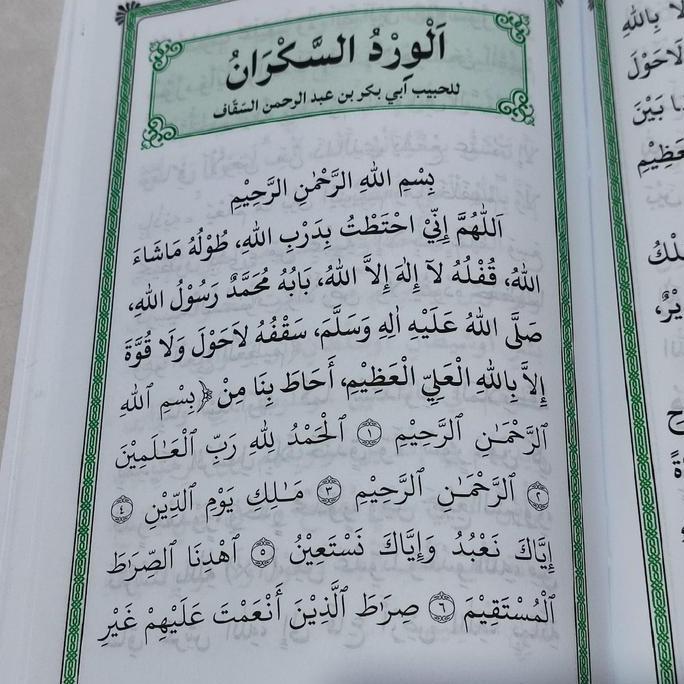 اَلْوِرْدُ السَّكْرَانُ
للحبيب أبي بكر بن عبد الرحمن السقّاف
بِسْمِ اللهِ الرَّحْمٰنِ الرَّحِيْمِ
اَللّٰهُمَّ إِنِّيْ احْتَطْتُ بِدَرْبِ اللهِ، طُوْلُهُ مَاشَاءَ
اللهُ، قُفْلُهُ لآ إِلٰهَ إِلاَّ اللهُ، بَابُهُ مُحَمَّدٌ رَسُوْلُ اللهِ،
صَلَّى اللهُ عَلَيْهِ اٰلِهِ وَسَلَّمَ، سَقْفُهُ لاَحَوْلَ وَلَا قُوَّةَ
إِلاَّ بِاللهِ الْعَلِيِّ الْعَظِيْمِ، أَحَاطَ بِنَا مِنْ ﴿بِسْمِ ٱللهِ
ٱلرَّحْمَـٰنِ ٱلرَّحِيْمِ ۝١ ٱلْحَمْدُ لِلهِ رَبِّ ٱلْعَـٰلَمِيْنَ
۝٢ ٱلرَّحْمَـٰنِ ٱلرَّحِيْمِ ۝٣ مَـٰلِكِ يَوْمِ ٱلدِّيْنِ ۝٤
إِيَّاكَ نَعْبُدُ وَإِيَّاكَ نَسْتَعِيْنُ ۝٥ ٱهْدِنَا ٱلصِّرَٰطَ
ٱلْمُسْتَقِيْمَ ۝٦ صِرَٰطَ ٱلَّذِيْنَ أَنْعَمْتَ عَلَيْهِمْ غَيْرِ
لَاحَوْلَ
بَيْنَ